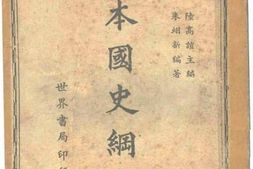 陸高誼主編
朱翊新編著
本國史綱
世界書局印